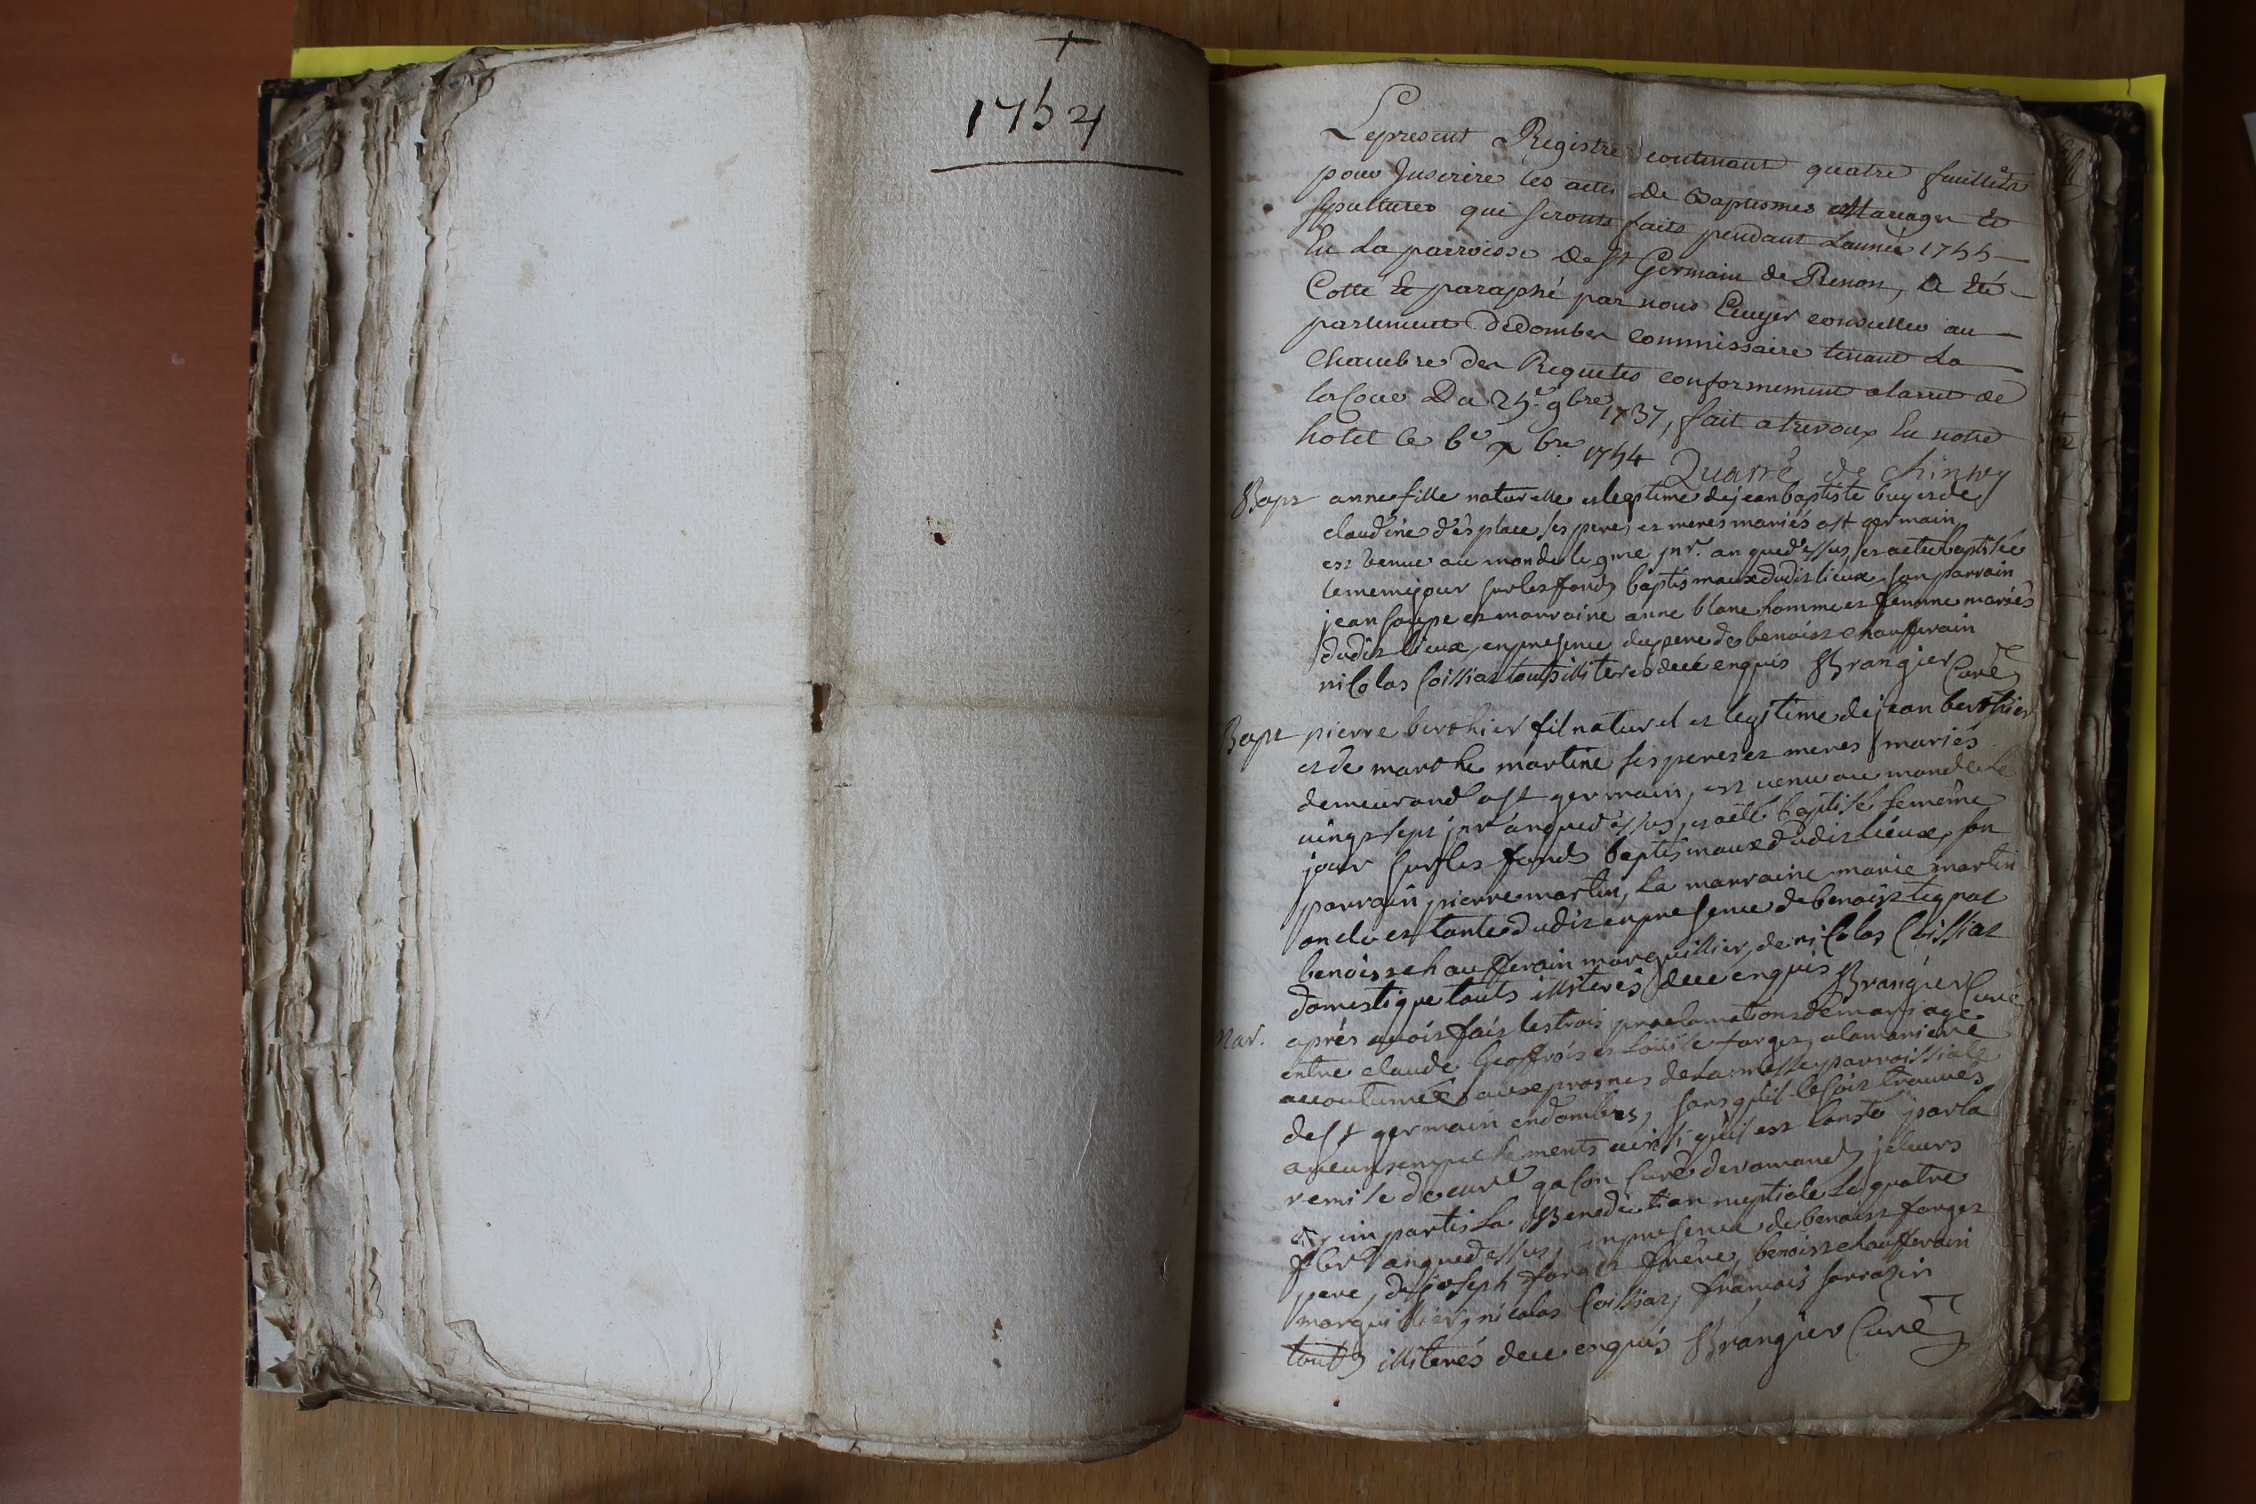 +
1754
Le present Registre contenant quatre feuillets
pour Inscrire les actes de Baptesmes Mariages et
sepultures qui seronts faits pendant L'année 1755
En La parroisse de St Germain de Renon, a été
Cotté et paraphé par nous Ecuyer conseiller au
parlement de dombes commissaire tenant La
Chambre des Requetes conformement a larret de
la Cour Du 25e 9bre 1737, fait a trevoux En notre
hotel le 6e xbre 1754 Quarré de Chinwy
Bapt anne fille naturelle et legitime de jean baptiste buyer de
claudine desplace ses pere et meres mariés a st germain
est venue au monde le 9me jnr. an que dessus, et a eté baptisée
le meme jour sur les fonds baptismaux dudit lieux son parrain
jean et marraine anne blanc homme et femme mariés
dudit lieux, en presence du pere de benoist chaufferain
nicolas Coissiat touts illiteres de ce enquis Brangier Curé
Bapt pierre berthier fil naturel et legitime de jean berthier
et de marthe martine ses peres et meres mariés
demeurand a st germain, est venu au monde le
vingt sept jnr an que dessus, et a eté baptisé le même
jour sur les fonds baptismaux dudit lieux, son
parrain pierre martin, La marraine marie martin
oncle et tante dudit en presence de benoist tignat
benoist chaufferain marguillier, de nicolas Coissiat
domestique touts illiterés de ce enquis Brangier Curé
Mar. aprés avoir fait les trois proclamations de mariage
entre claude Geoffrois et Loüise farges, a la maniere
accoutumée aux prosnes de la messe parroissiale
de st germain en dombes, sans qu'il se soit trouvés
aucuns empechements ainsi qu'il est consté par la
remise de curé Curé de je leurs
ay imparti La Benediction nuptiale Le quatre
fbr an que dessus, en presence de benoist farges
pere, de joseph farges frère, benoist chaufferain
marguillier, nicolas Coissiat, francois sarrazin
touts illiterés de ce enquis Brangier Curé